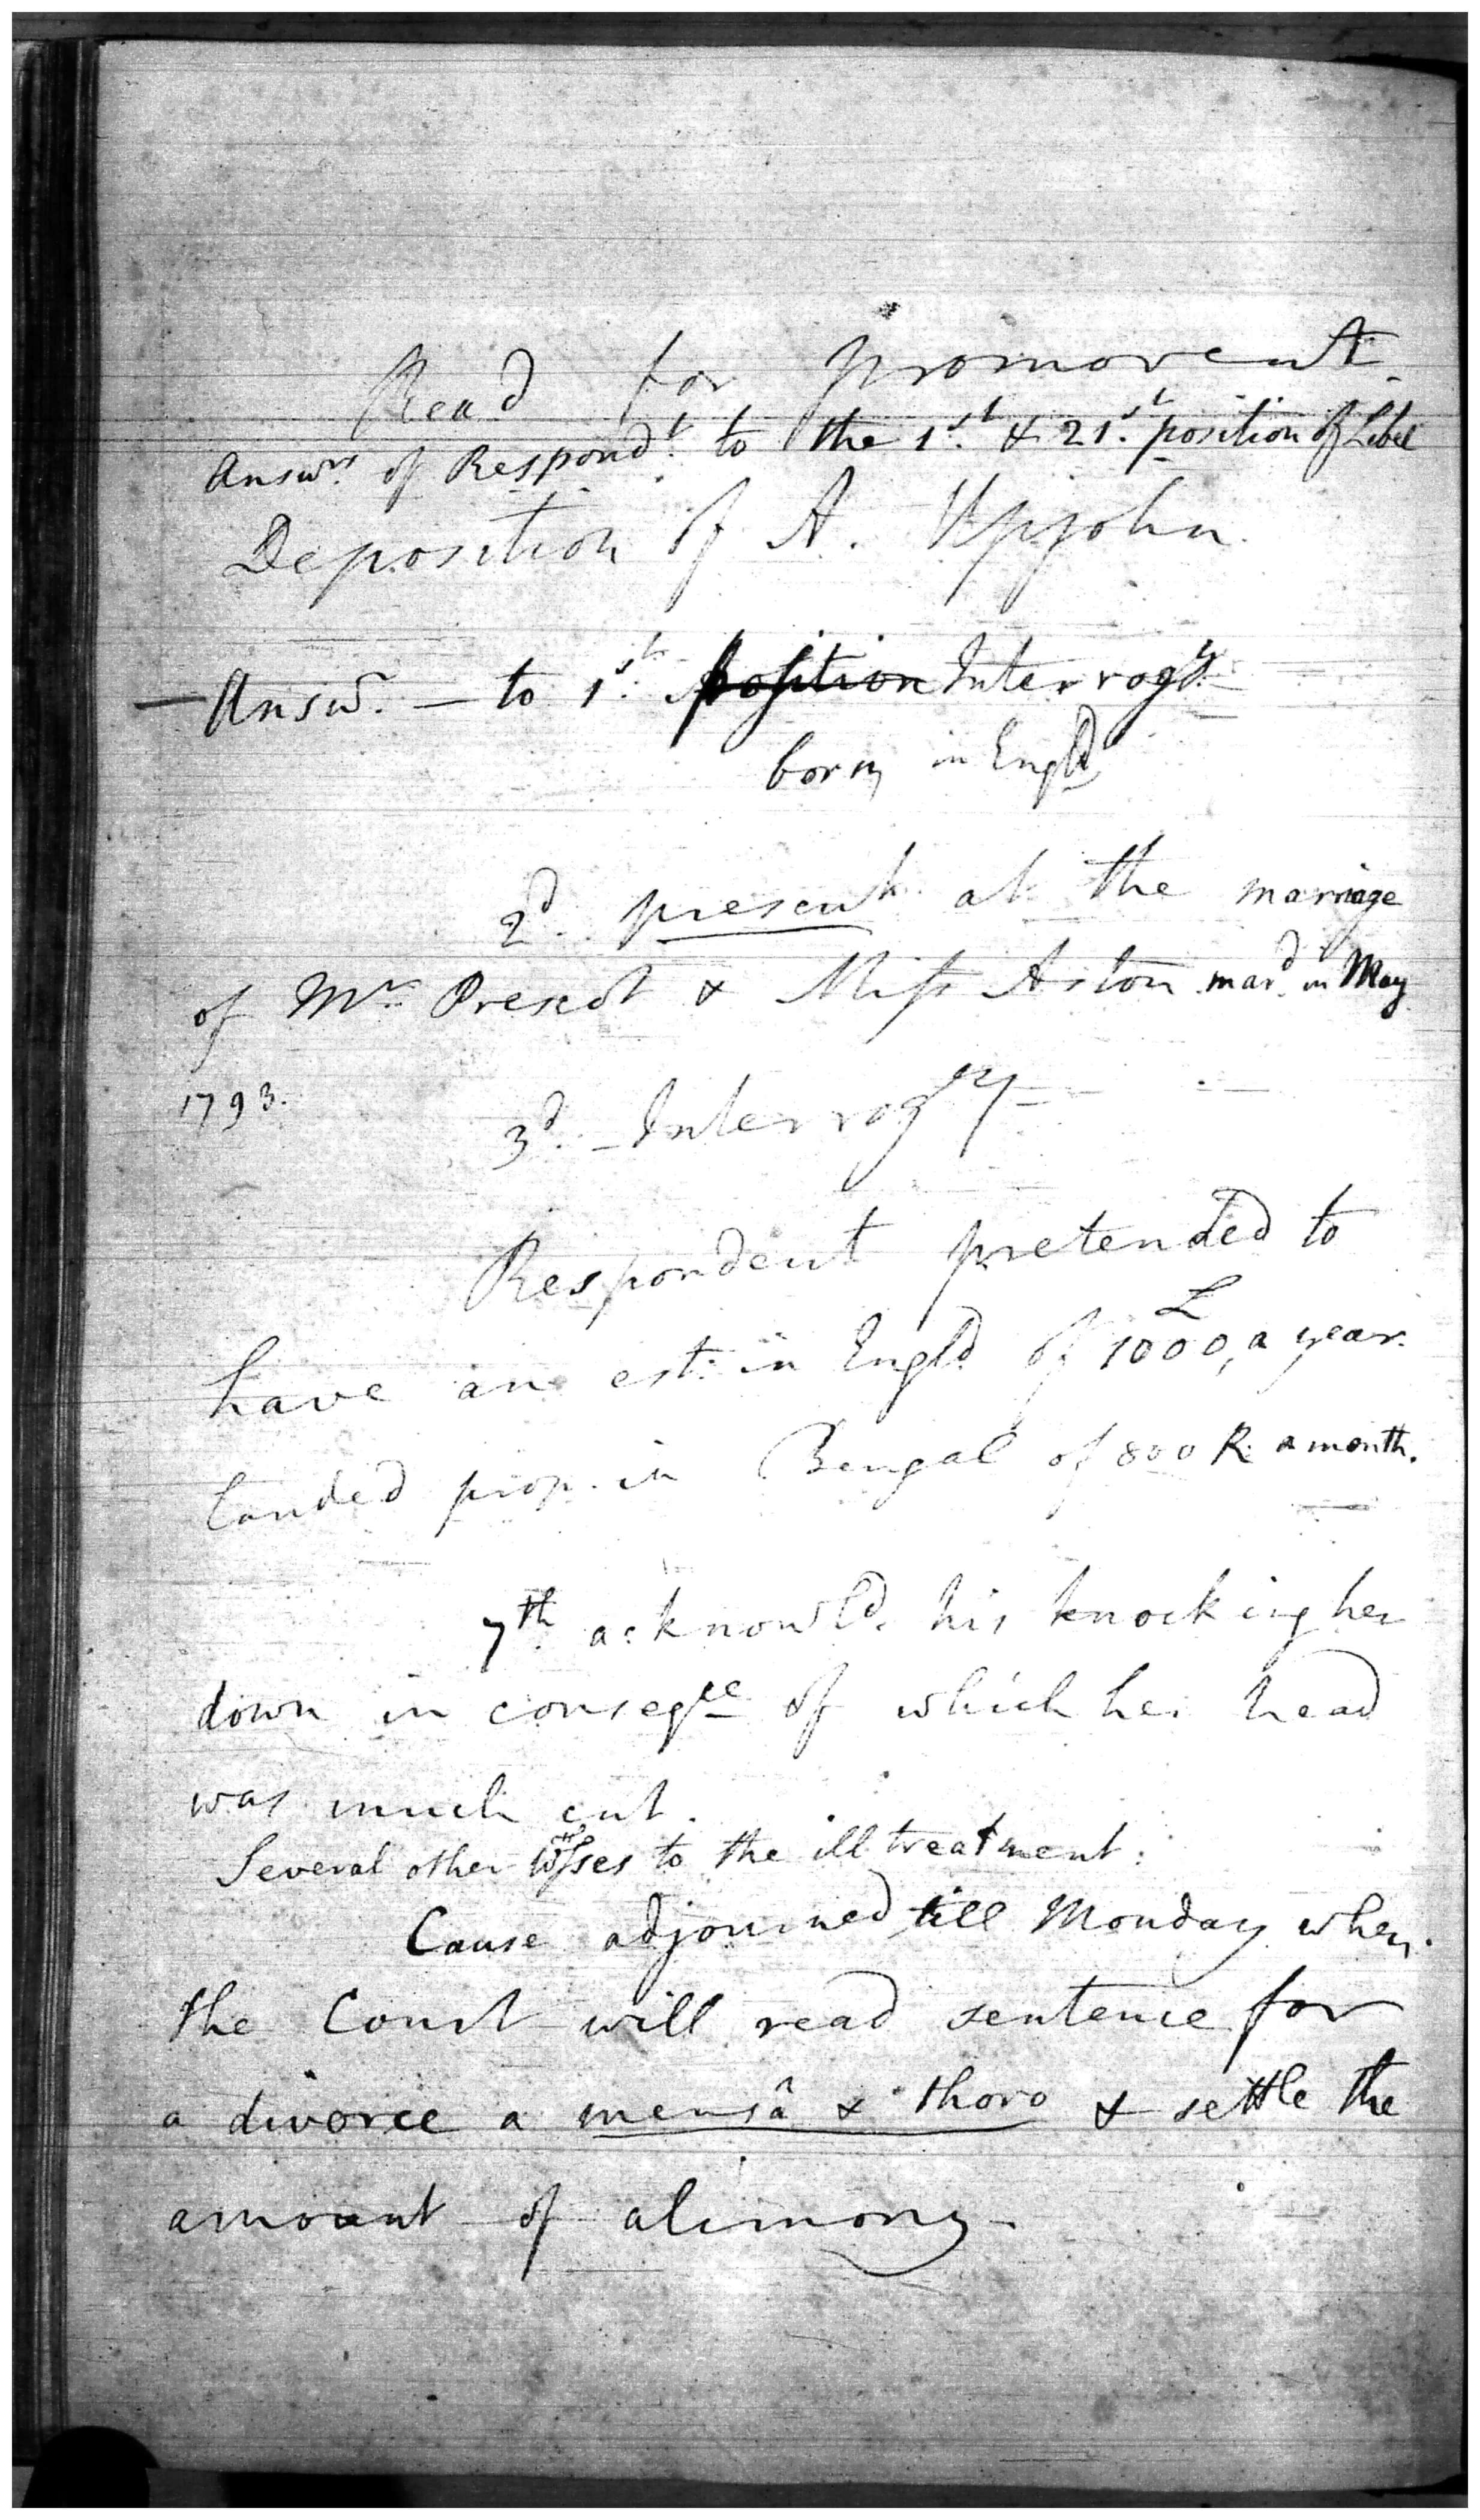 Read for promovent.
Answrs. of Respondt. to the 1st. & 21st. position of Libel
Deposition of A. Upjohn.
— Answr. — to 1st. position Interrogy.
born in Engld
2d. present at the marriage
of Mr. Prescot & Miss Aston mard. in May
1793.
3d. Interrogry —
Respondent pretended to
have an est: in Engld of £1000, a year.
landed prop. in Bengal of 800 R. a month.
7th acknowld. his knocking her
down in conseqce of which her head
was much cut.
Several other to the ill treatment:
Cause adjourned till Monday when
the Court will read sentence for
a divorce a mensâ & thoro & settle the
amount of alimony —